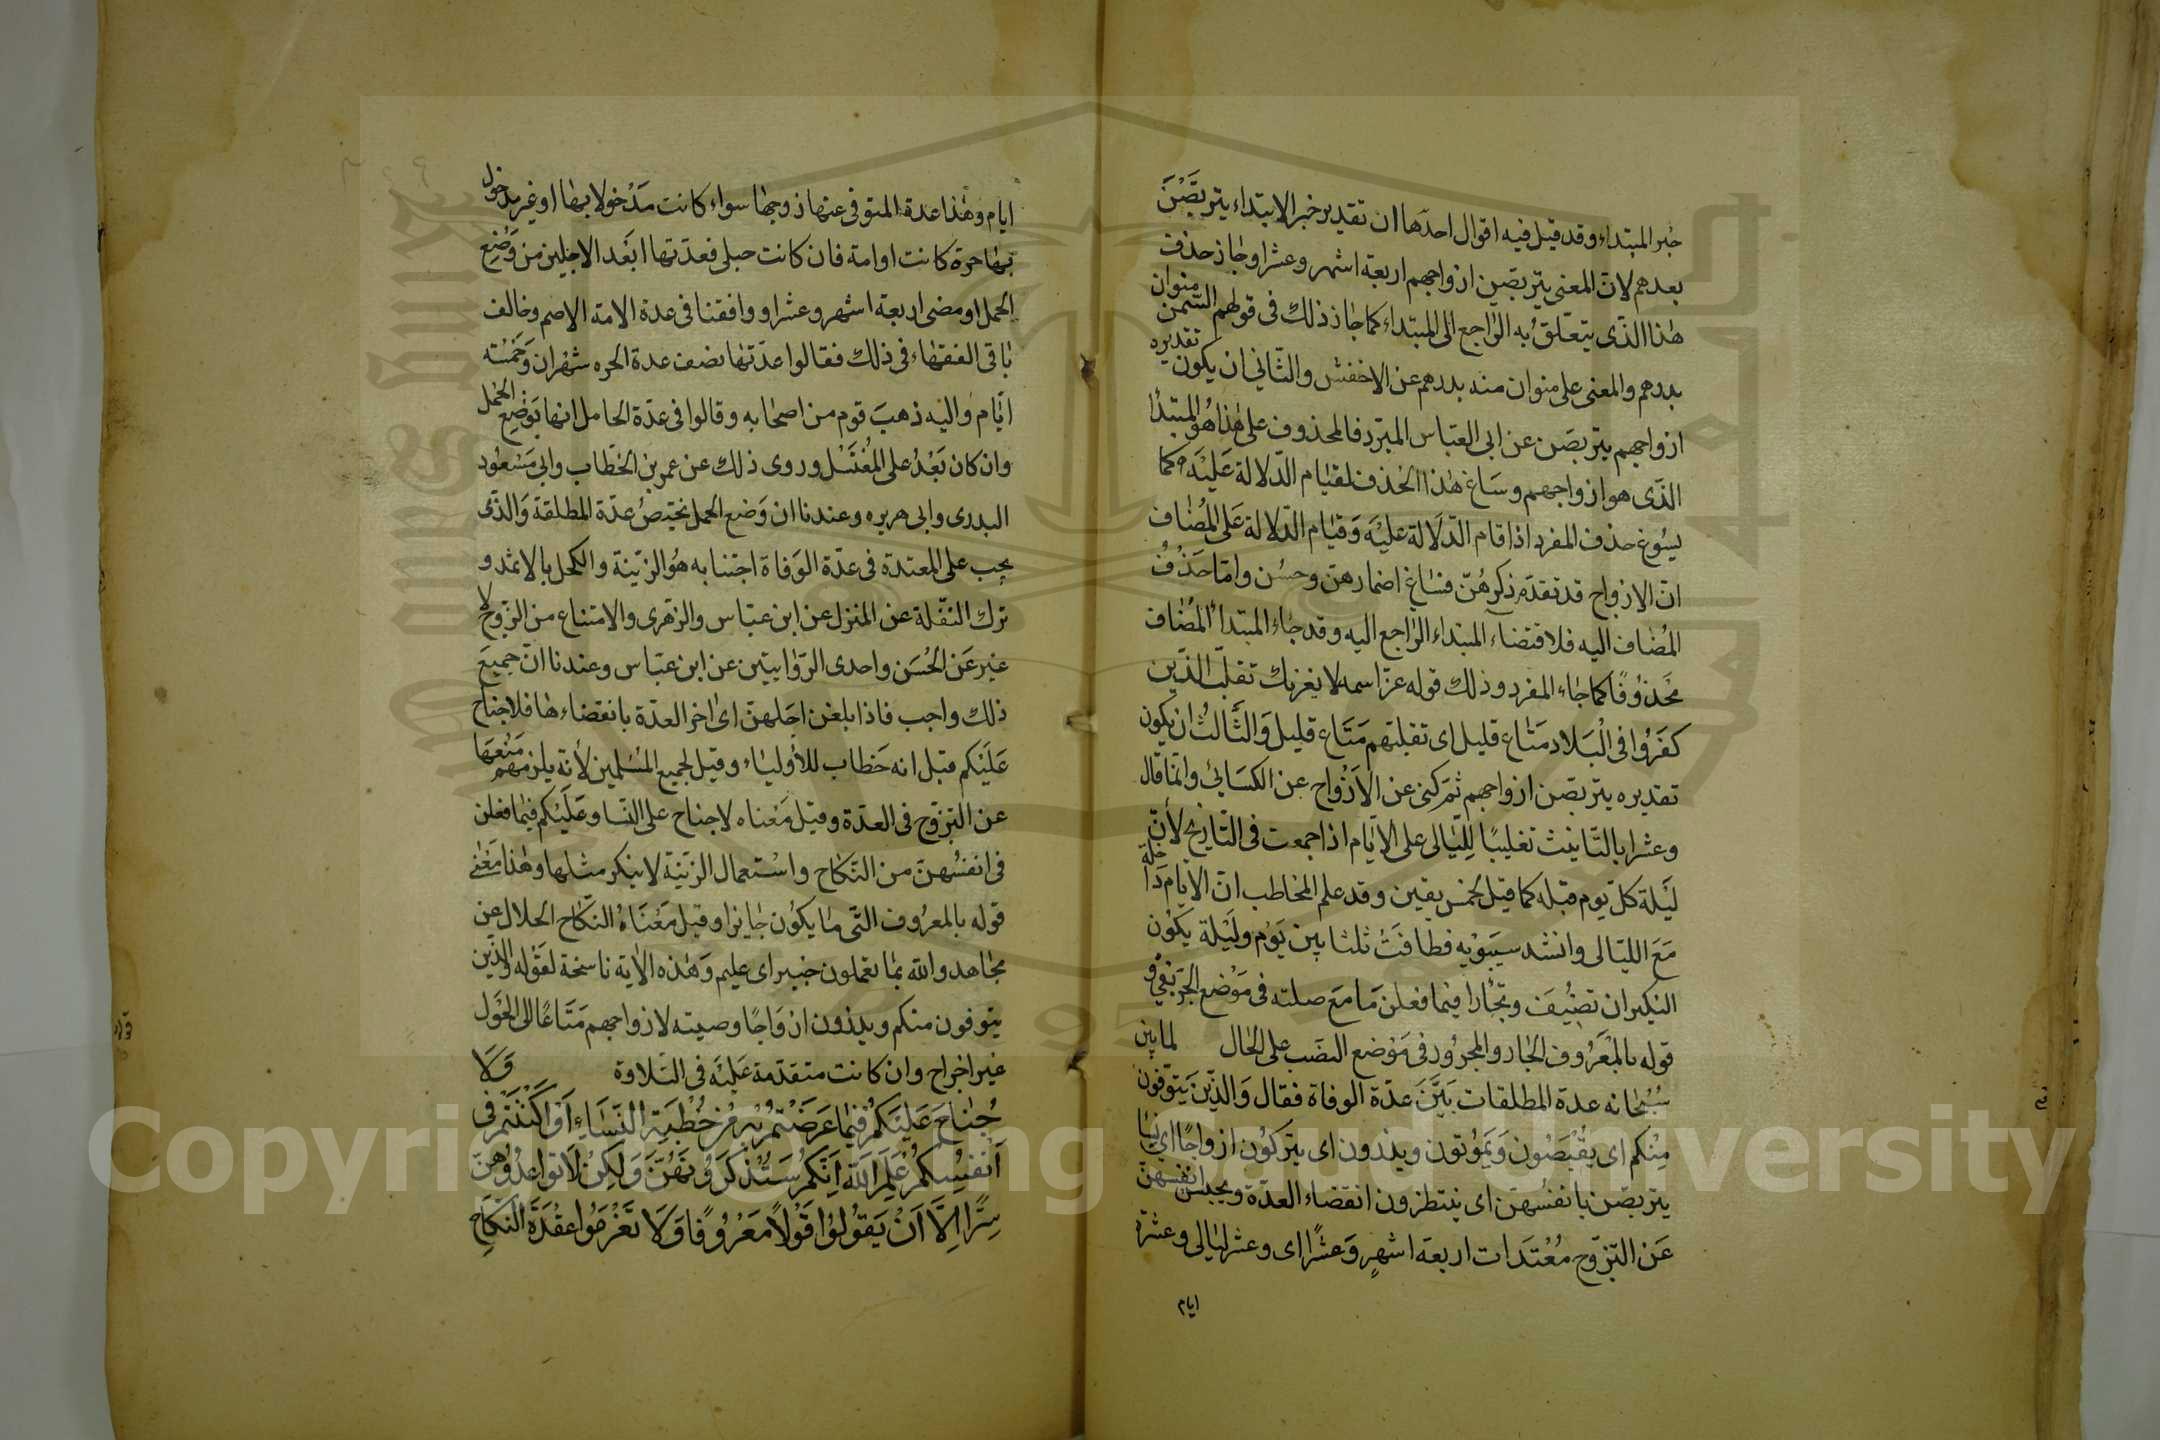 خبر المبتداء وقد قيل فيه اقوال احدها ان تقدير خبر الابتداء يتربصن
بعدهم لان المعنى يتربصن ازواجهم اربعة اشهر وعشرا وجاز حذف
هذا الذى يتعلق به الراجع الى المبتداء كما جاز ذلك فى قولهم السمن منوان
بدرهم والمعنى على منوان منه بدرهم عن الاخفش والثانى ان يكون تقديره
ازواجهم يتربصن عن ابى العباس المبرد فالمحذوف على هذا هو المبتدأ
الذى هو ازواجهم وساغ هذا الحذف لقيام الدلالة عليه كما
يسوغ حذف المفرد اذا قام الدلالة عليه وقيام الدلالة على المضاف
ان الازواج قد تقدم ذكرهن فساغ اضمارهن وحسن واما حذف
المضاف اليه فلاقتضاء المبتداء الراجع اليه وقد جاء المبتدأ المضاف
محذوفا كما جاء المفرد وذلك قوله عز اسمه لا يغرنك تقلب الذين
كفروا فى البلاد متاع قليل اى تقلبهم متاع قليل والثالث ان يكون
تقديره يتربصن ازواجهم ثم كنى عن الازواج عن الكسائى وانما قال
وعشرا بالتانيث تغليبا لليالى على الايام اذا جمعت فى التاريخ لأن
ليلة كل يوم قبله كما قيل لخمس بقين وقد علم المخاطب ان الايام داخلة
مع الليالى وانشد سيبويه فطافت ثلثا بين يوم وليلة يكون
النكير ان تضيف وتجأرا فيما فعلن ما مع صلته فى موضع الجر بفى و
قوله بالمعروف الجار والمجرور فى موضع النصب على الحال لما بين
سبحانه عدة المطلقات بين عدة الوفاة فقال والذين يتوفون
منكم اى يقبضون ويموتون ويذرون اى يتركون ازواجا اى نسا
يتربصن بانفسهن اى ينتظرون انقضاء العدة ويحبسن انفسهن
عن التزوج معتدات اربعة اشهر وعشرا اى وعشر ليالى وعشرة
ايام
ايام وهذا عدة المتوفى عنها زوجها سواء كانت مدخولا بها او غير مدخول
بها حرة كانت او امة فان كانت حبلى فعدتها ابعد الاجلين من وضع
الحمل او مضى اربعة اشهر وعشرا ووافقنا فى عدة الامة الاصم وخالف
باقى الفقهاء فى ذلك فقالوا عدتها نصف عدة الحره شهران وخمسة
ايام واليه ذهب قوم من اصحابه وقالوا فى عدة الحامل انها بوضع الحمل
وان كان بعد على المغتسل وروى ذلك عن عمر بن الخطاب وابى مسعود
البدرى وابى هريره وعندنا ان وضع الحمل يختص عدة المطلقة والذى
يجب على المعتدة فى عدة الوفاة اجتنابه هو الزينة والكحل بالاثمد و
ترك النقلة عن المنزل عن ابن عباس والزهرى والامتناع من الزوج لا
غير عن الحسن واحدى الروايتين عن ابن عباس وعندنا ان جميع
ذلك واجب فاذا بلغن اجلهن اى اخر العدة بانقضاءها فلا جناح
عليكم قيل انه خطاب للأولياء وقيل لجميع المسلمين لأنه يلزمهم منعها
عن التزوج فى العدة وقيل معناه لا جناح على النسا وعليكم فيما فعلن
فى انفسهن من النكاح واستعمال الزينة لا ينكر مثلها وهذا معنى
قوله بالمعروف التى ما يكون جايزا وقيل معناه النكاح الحلال عن
مجاهد والله بما تعملون خبير اى عليم وهذه الاية ناسخة لقوله والذين
يتوفون منكم ويذرون ازواجا وصيته لازواجهم متاعا الى الحول
غير اخراج وان كانت متقدمة عليه فى التلاوة ولا
جناح عليكم فيما عرضتم به من خطبة النساء او اكننتم فى
انفسكم علم الله انكم ستذكرونهن ولكن لا تواعدوهن
سرا الا ان يقولوا قولا معروفا ولا تعزموا عقدة النكاح
Copyright © King Saud University